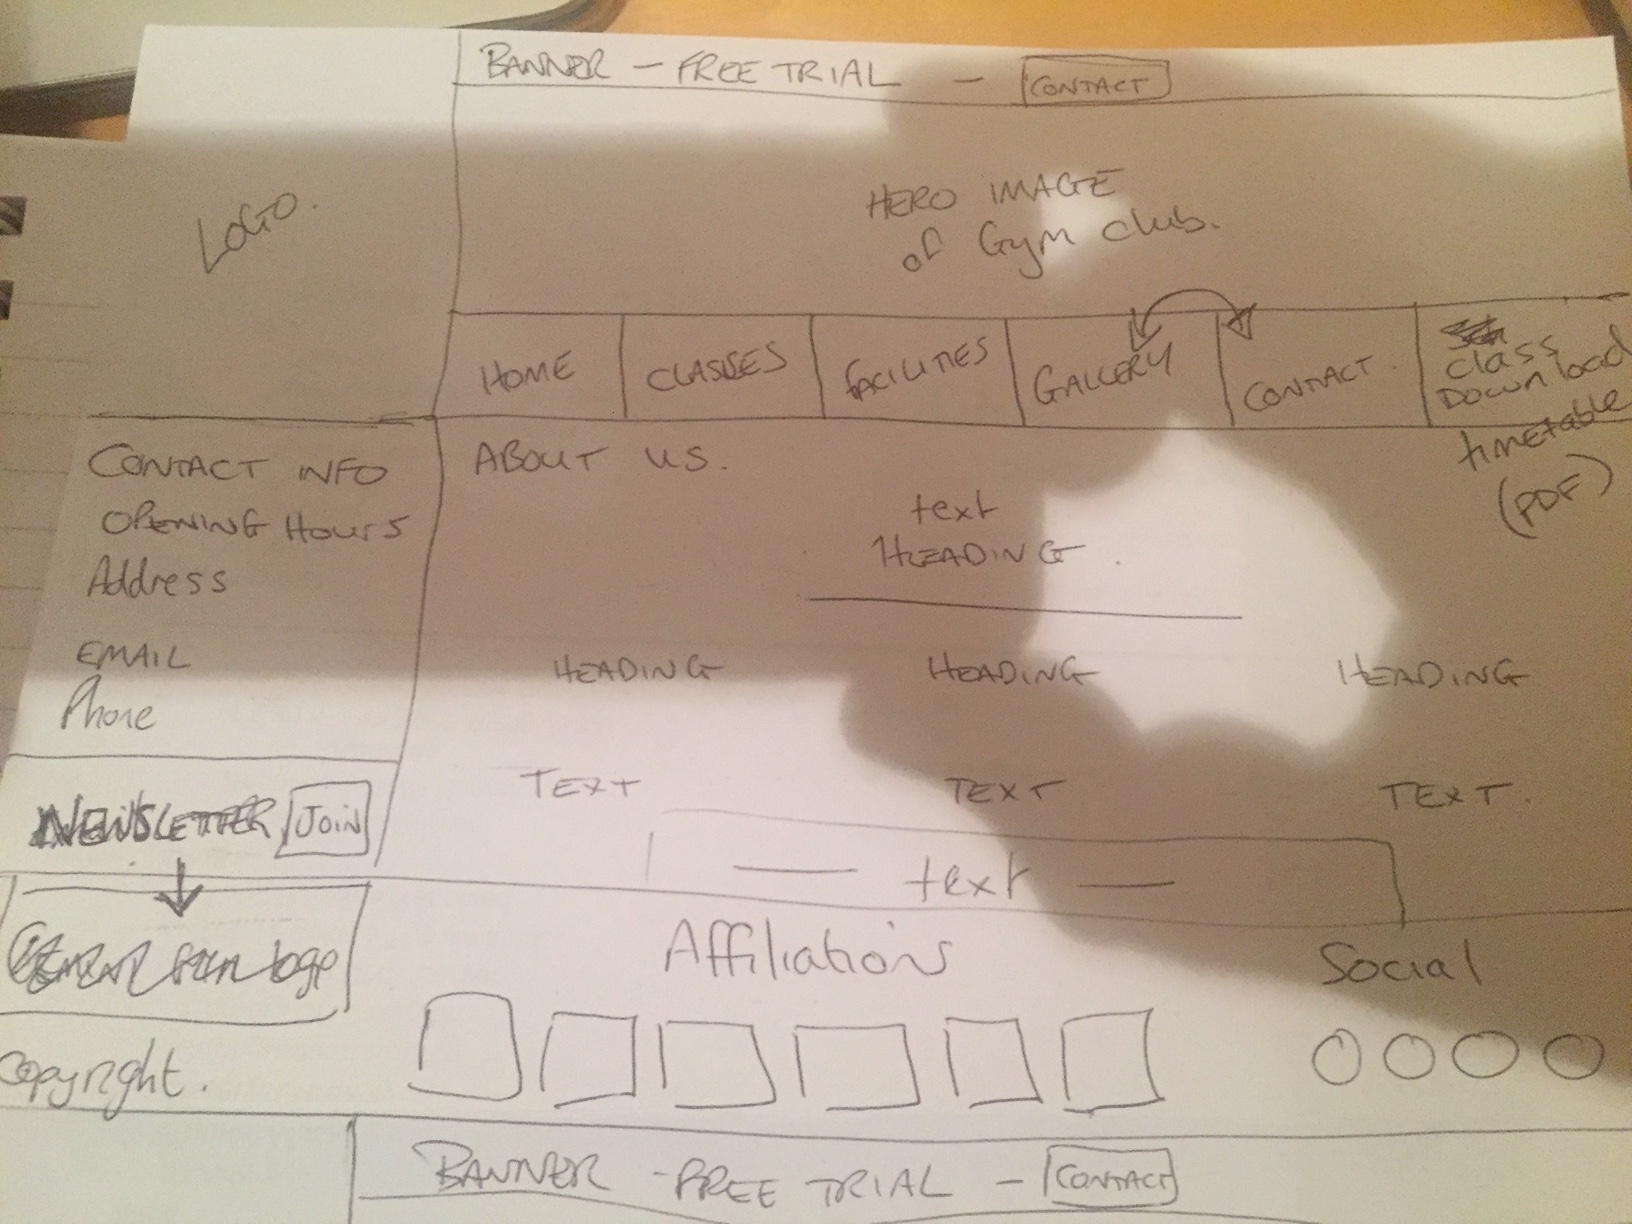 BANNER - FREE TRIAL - CONTACT
LOGO.
HERO IMAGE
of Gym club.
HOME
CLASSES
FACILITIES
GALLERY
CONTACT.
Class
Download
timetable
(PDF)
CONTACT INFO
OPENING HOURS
Address
EMAIL
Phone
NEWSLETTER JOIN
ABOUT US.
text
HEADING.
HEADING HEADING HEADING
TEXT TEXT TEXT.
— text —
logo
Copyright.
Affiliations
Social
BANNER - FREE TRIAL - CONTACT